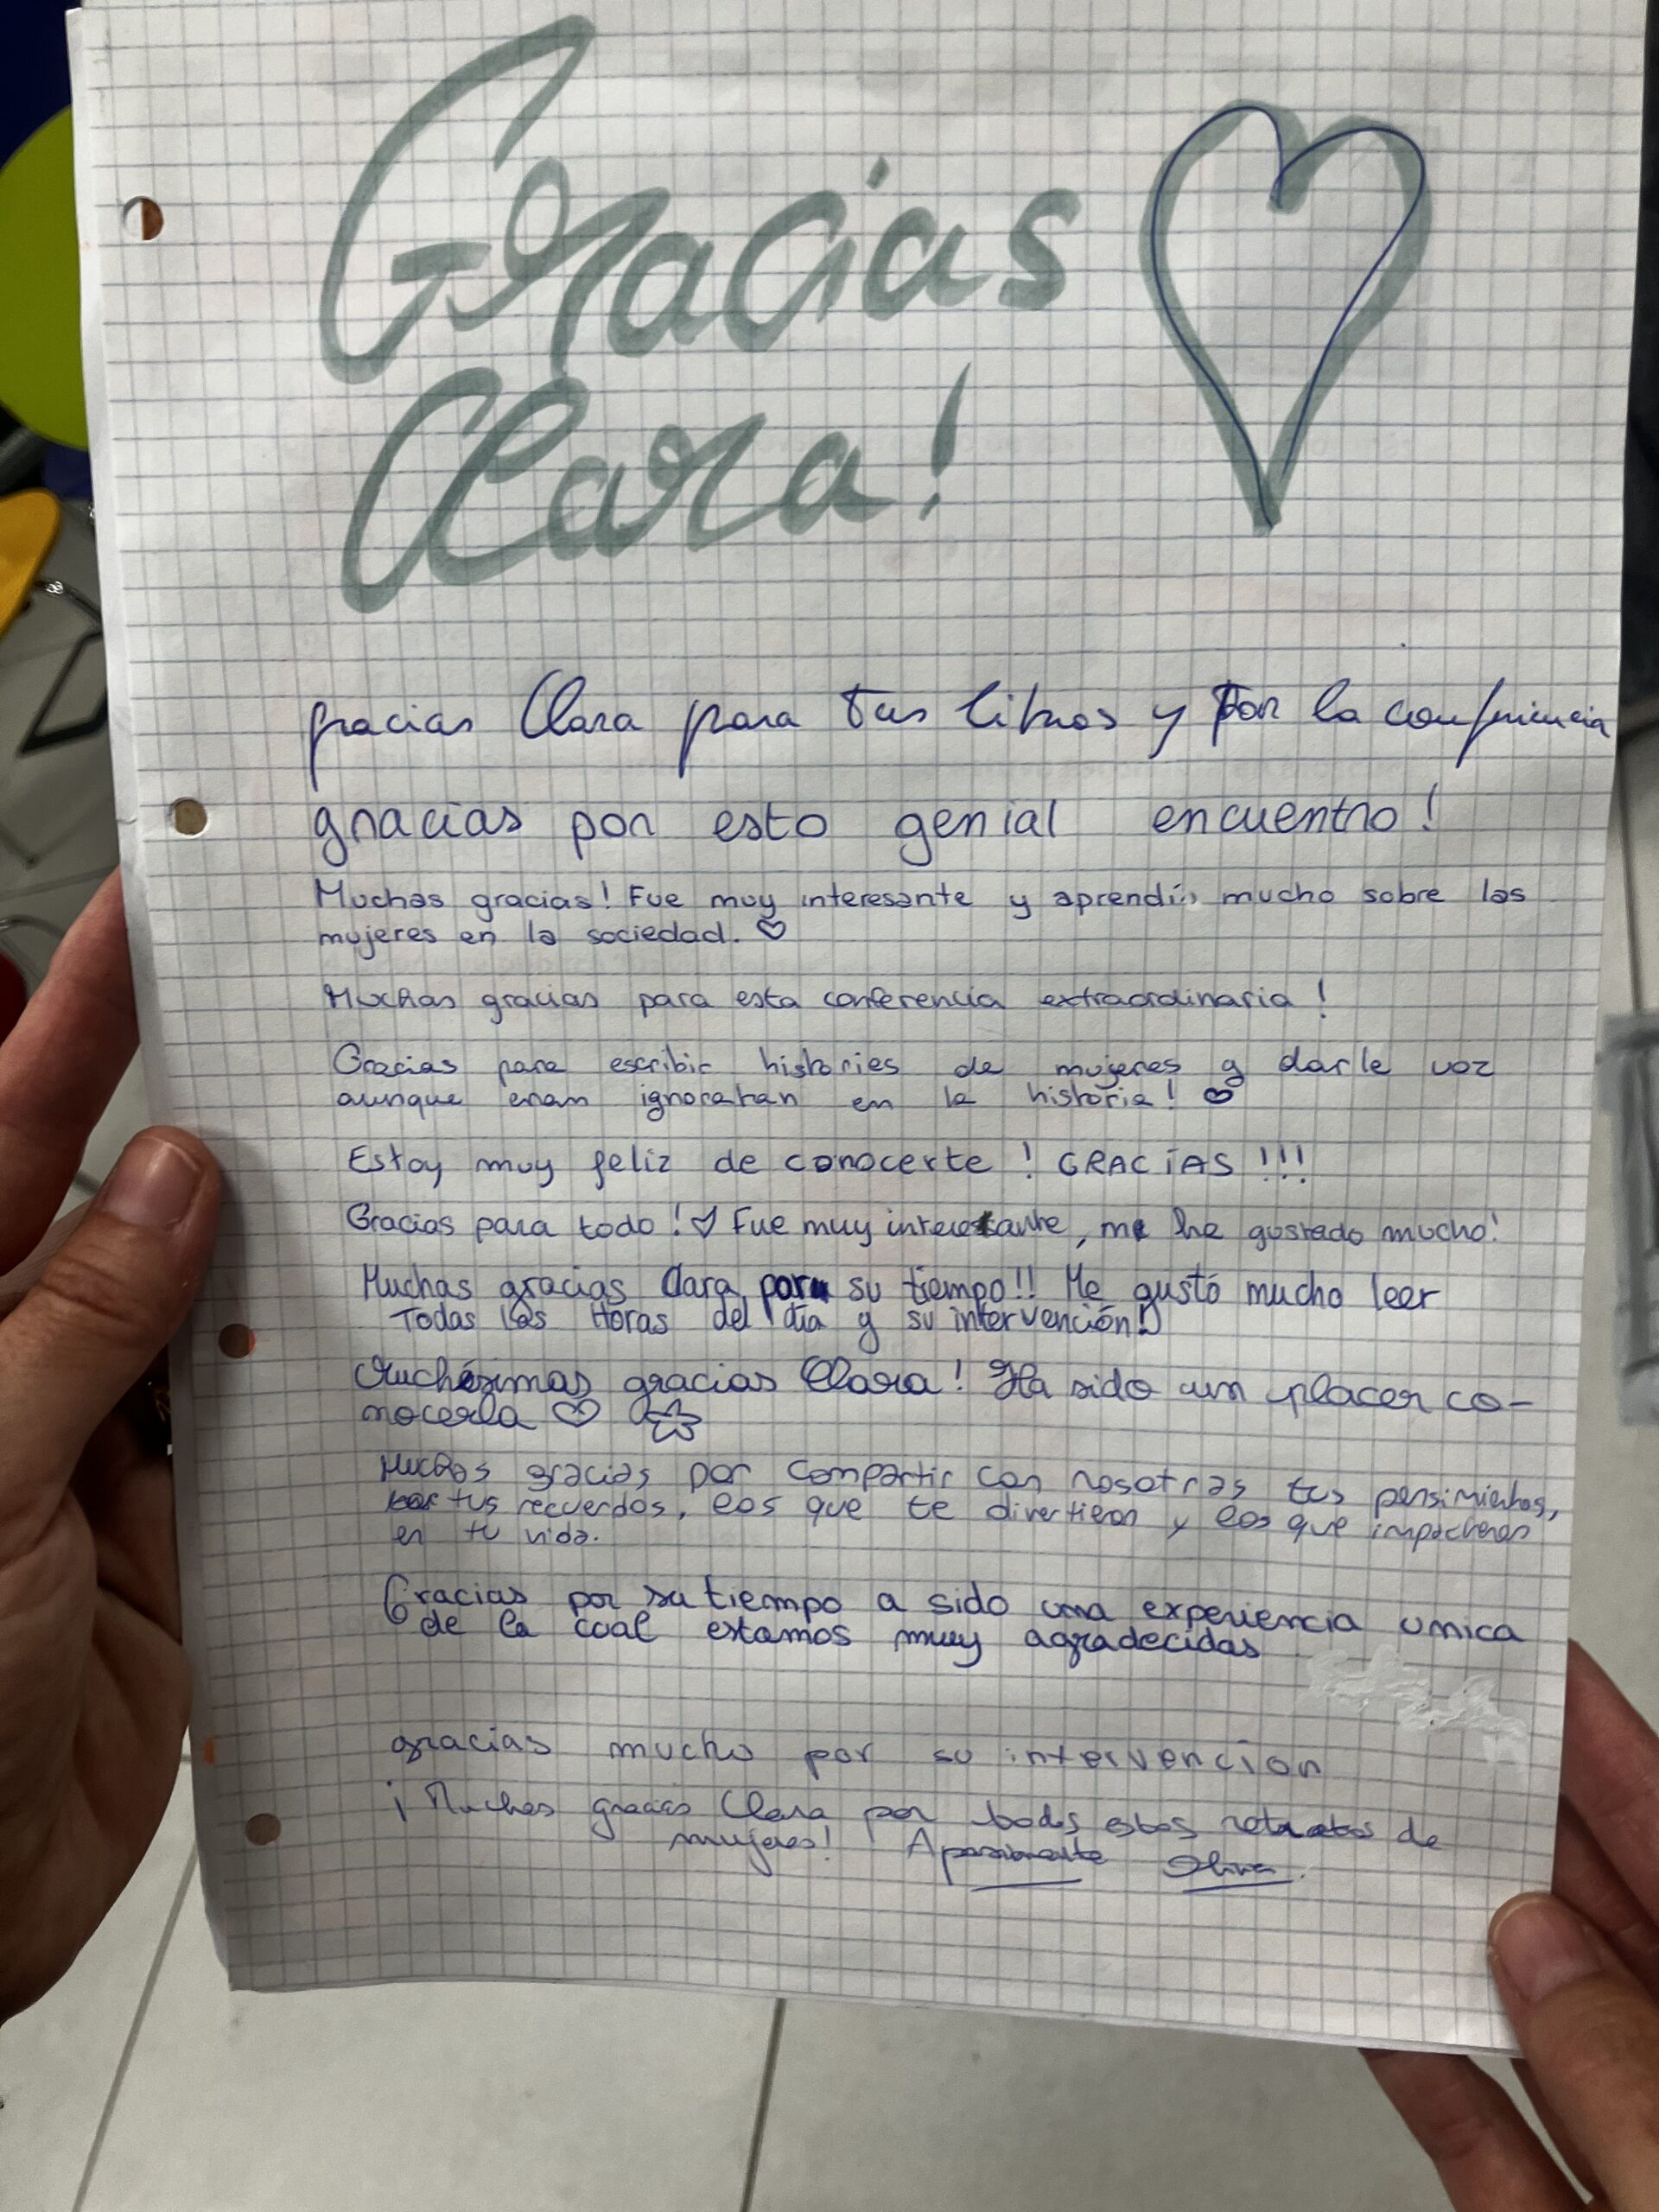 Gracias
Clara!
gracias Clara para tus libros y por la confinicia
gracias por esto genial encuentro!
Muchas gracias! Fue muy interesante y aprendí mucho sobre las
mujeres en la sociedad. ♡
Muchas gracias para esta conferencia extraordinaria!
Gracias para escribir histories de mujeres y darle voz
aunque eran ignoraran en la historia! ♡
Estoy muy feliz de conocerte! GRACÍAS!!!
Gracias para todo! ♡ Fue muy interesante, me he gustado mucho!
Muchas gracias Clara por su tiempo!! Me gustó mucho leer
Todas las Horas del día y su intervención!
Muchísimas gracias Clara! Ha sido un placer co-
nocerla ♡ ☆
Muchas gracias por compartir con nosotras tus pensimientos,
tus recuerdos, los que te divertieron y los que impacteron
en tu vida.
Gracias por su tiempo a sido una experiencia unica
de la cual estamos muy agradecidas
gracias mucho por su intervencion
¡Muchas gracias Clara por todos estos retratos de
mujeres!